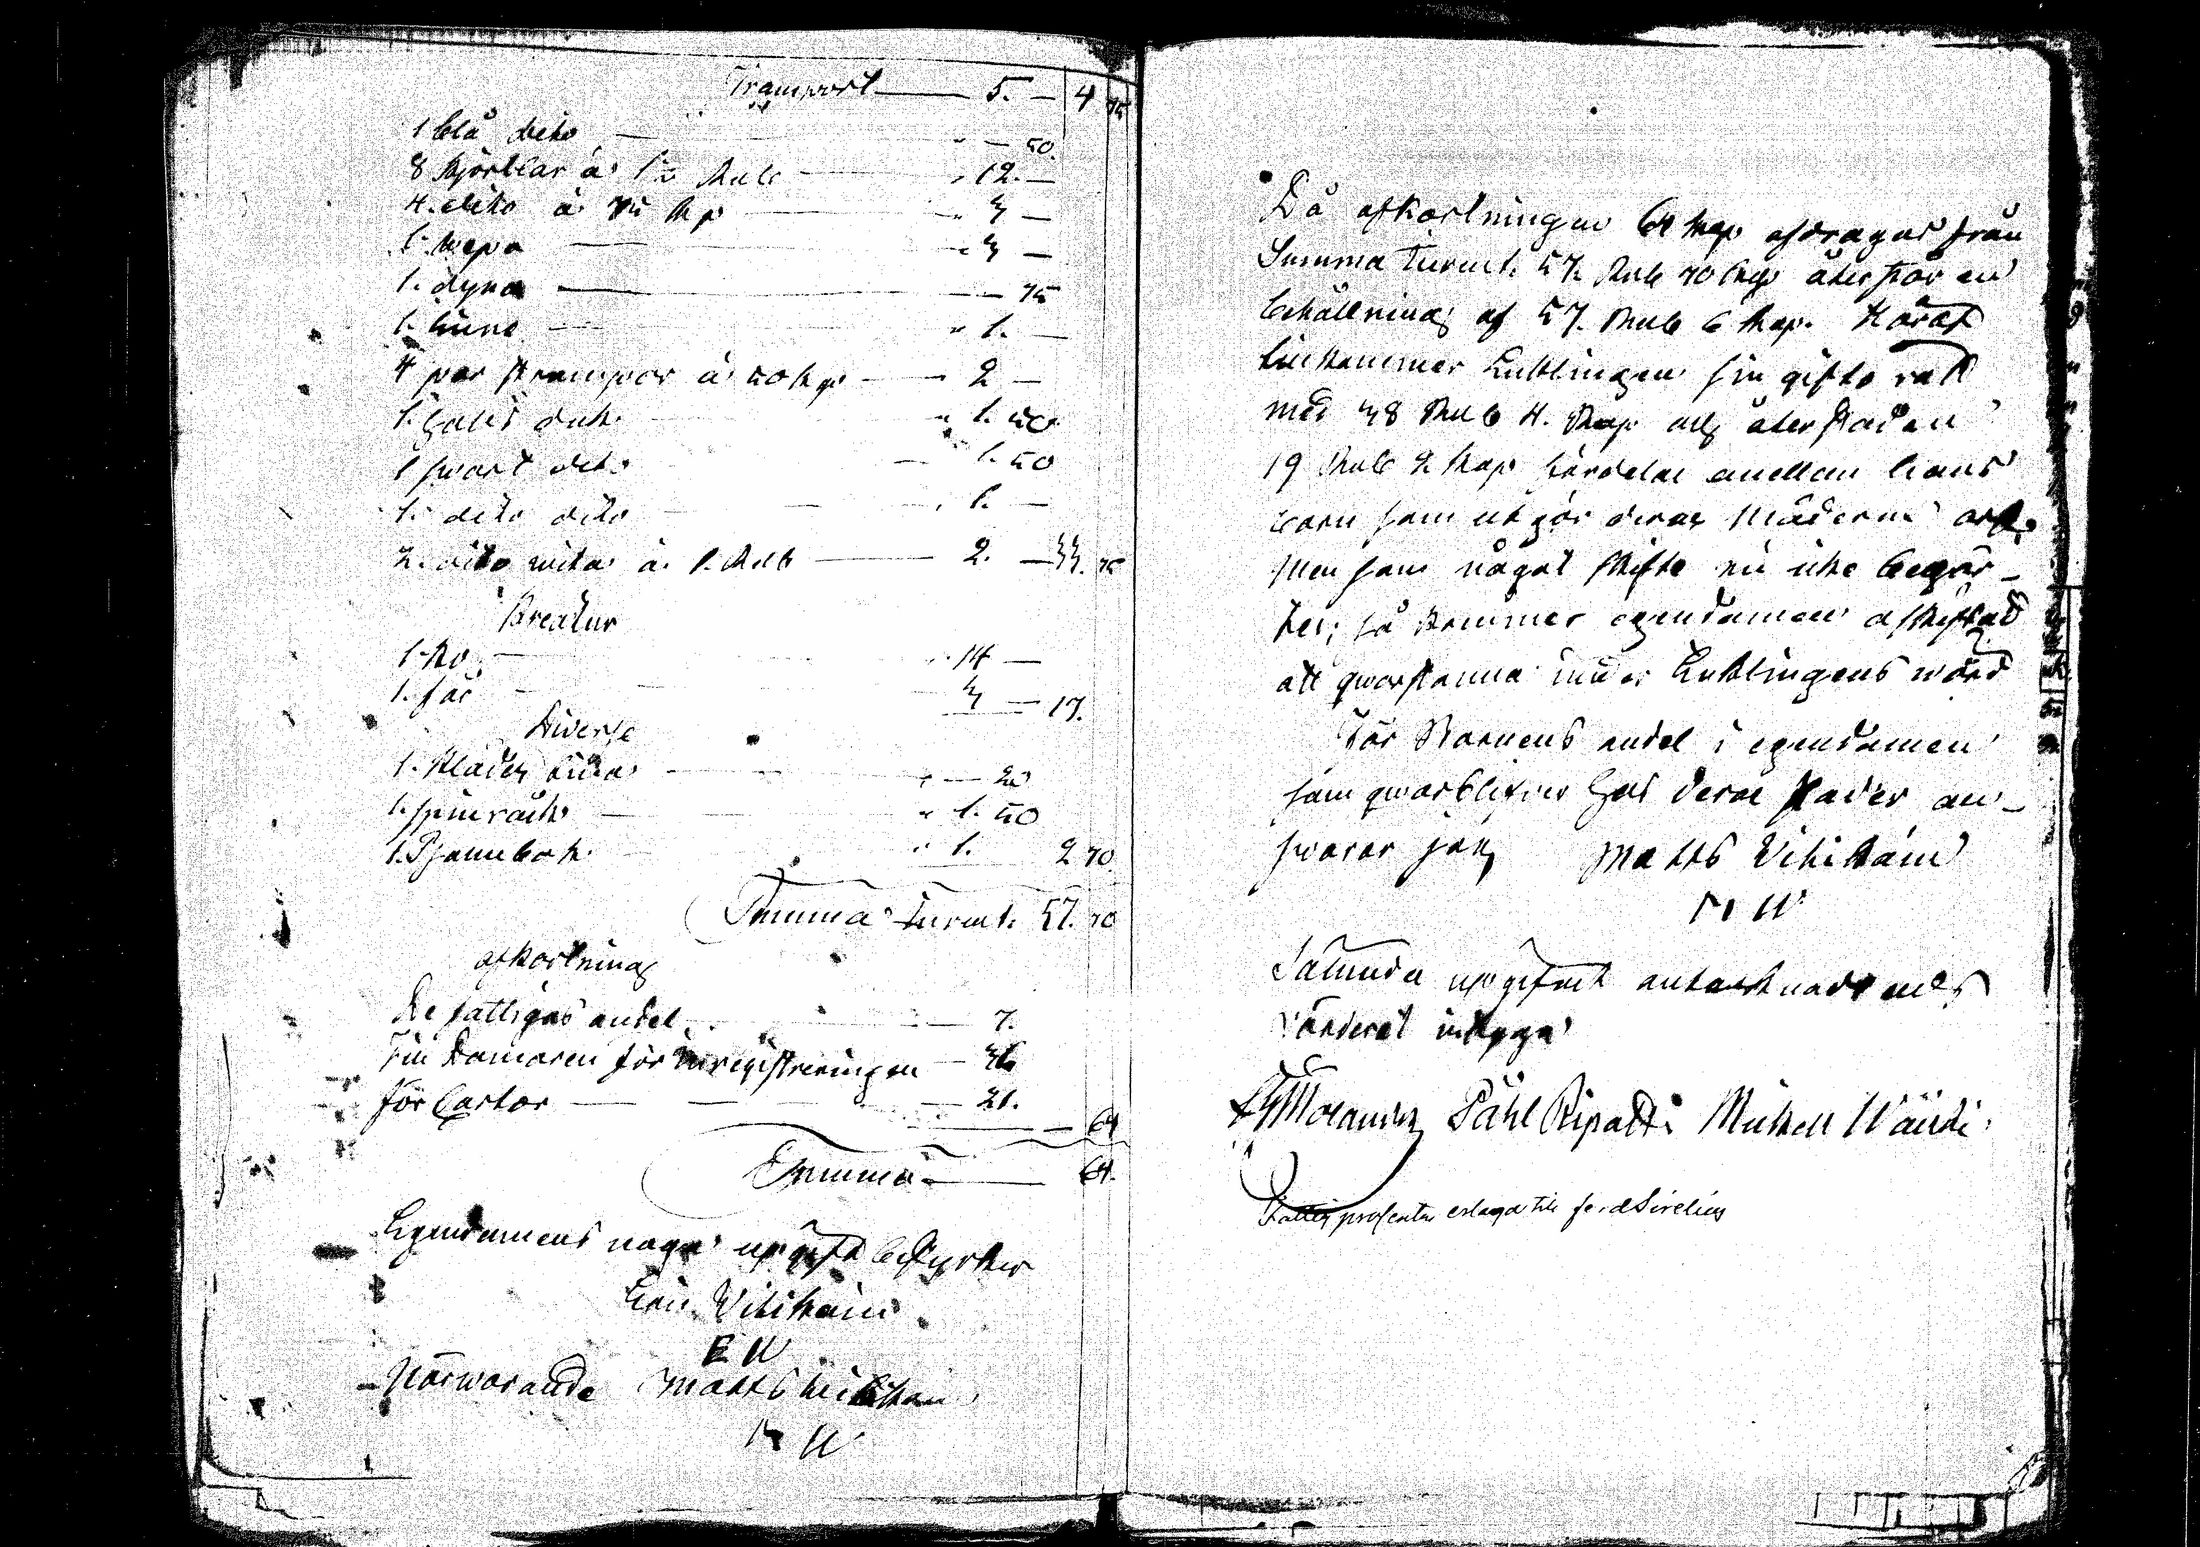 Transport — 5. — 4 75
1 blå dito — " — 50.
8 skjortlar á 1½ Rub — " 12. —
4. dito á 75 kp — " 3 —
1. wepa — " 3 —
1. dyna — — 75
1. — " 1. —
4 par strumpor á 50 kp — 2 —
1. hals duk — " 1. 50
1 swart dito — 1. 50
1. dito dito — " 1. —
2. dito wita á 1. Rub — 2. — 33. 75
Kreatur
1. ko — " 14 —
1. får — 3 — 17.
Diverse
1. kläder kista — " — 20
1. spinråck — " 1. 50
1. Psalmbok — " 1. 2 70.
Summa Silfwermt. 57. 70
afkortning
De fattigas andel — 7.
Till Domaren för inregistreringen — 36
för Cartor — 21.
— 64
Summa — 64.
Egendomens noga upgift bestyrker
Eric Vihikain
E W
Närwarande Matts Vihikain
M W
Då afkortningen 64 kop afdragas från
Summa Silfwermt. 57. Rub 70 kop återstår en
behållning af 57. Rub 6 kop. Häraf
tilkommer Enklingen sin gifto rätt
med 38 Rub 4. kop och återstoden
19 Rub 2 kop fördelas emellan hans
barn som utgör deras Möderne arf.
Men som något skifte nu icke begär-
tes; så kommer egendomen oskiftad
att qwarstanna under Enklingens wård
För Barnens andel i egendomen
som qwarblifwer hos deras Fader an-
swarar jag Matts Vihikain
M W
Sålunda upgifwit antecknadt och
värderat intyga
Molander Påhl Ripatti Mickell Wäisti
Fattig procenten erlagde till Sirelius